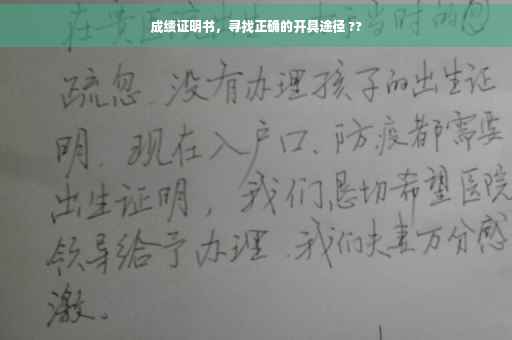 成绩证明书，寻找正确的开具途径 ??
当时的
疏忽、没有办理孩子的出生证
明、现在入户口、防疫都需要
出生证明，我们恳切希望医院
领导给予办理、我们夫妻万分感
激。